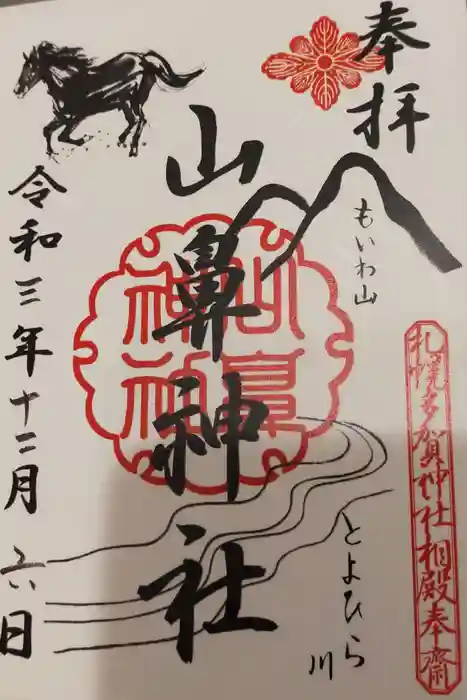 奉拝
もいわ山
札幌多賀神社相殿奉齋
山鼻神社
山鼻神社
とよひら川
令和三年十二月六日